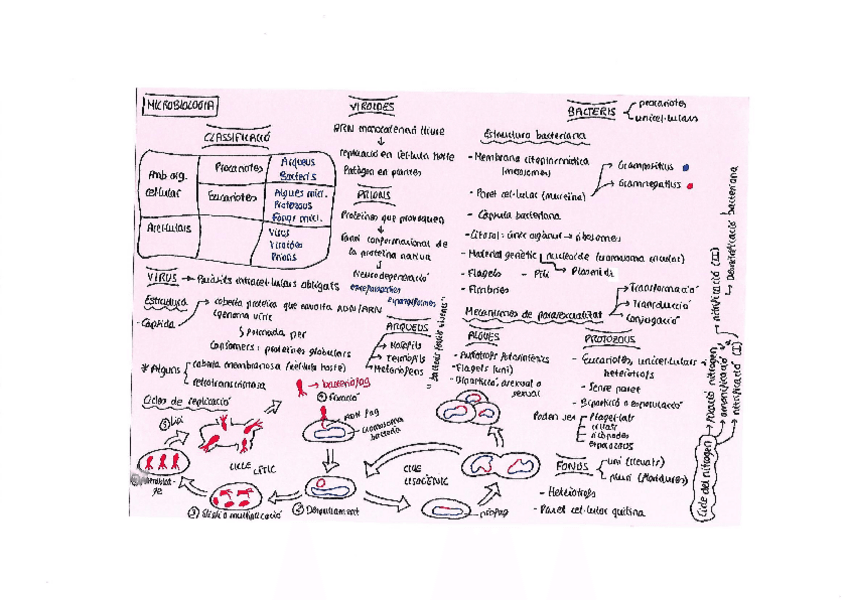 MICROBIOLOGIA
CLASSIFICACIÓ
Amb org. cel·lular
Procariotes
Arqueus
Bacteris
Eucariotes
Algues micr.
Protozous
Fongs micr.
Acel·lulars
Virus
Viroides
Prions
VIRUS → Paràsits intracel·lulars obligats
Estructura
- Càpsida
→ coberta proteica que envolta ADN/ARN
(genoma víric
formada per
Capsòmers: proteïnes globulars
* Alguns
coberta membranosa (cèl·lula hoste)
retrotranscriptasa
Cicles de replicació
→ bacteriòfag
① Fixació
ADN fag
Cromosoma bacterià
⑤ Lisi
CICLE LÍTIC
③ Síntesi o multiplicació
② Desnullament
CICLE LISOGÈNIC
profag
VIROIDES
ARN monocatenari lliure
↓
replicació en cèl·lula hoste
Patògen en plantes
PRIONS
Proteïnes que provoquen
↓
canvi conformacional de
la proteïna nativa
↓
Neurodegeneració
encefalopaties espongiformes
ARQUEUS
→ Halòfils
→ Termòfils
→ Metanògens
BACTERIS
procariotes
unicel·lulars
Estructura bacteriana
- Membrana citoplasmàtica
(mesosomes)
- Paret cel·lular (mureïna)
→ Grampositius
→ Gramnegatius
- Càpsula bacteriana
- Citosol: únic orgànul → ribosomes
- Material genètic
nucleoide (cromosoma circular)
→ Plasmids
- Flagels
- Pili
- Fímbries
Mecanismes de parasexualitat
→ Transformació
→ Transducció
→ Conjugació
ALGUES
- Autòtrofs fotosintètics
- Flagels (uni)
- Bipartició, asexual o
sexual
PROTOZOUS
- Eucariotes, unicel·lulars
heteròtrofs
- Sense paret
- Bipartició o esporulació
Poden ser
Flagel·lats
ciliats
rizòpodes
esporozous
FONGS
uni (llevats)
pluri (floridures)
- Heteròtrofs
- Paret cel·lular quitina
Cicle del nitrogen
→ Fixació nitrogen
→ amonificació
→ nitrificació (I)
→ nitrificació (II)
→ Desnitrificació bacteriana